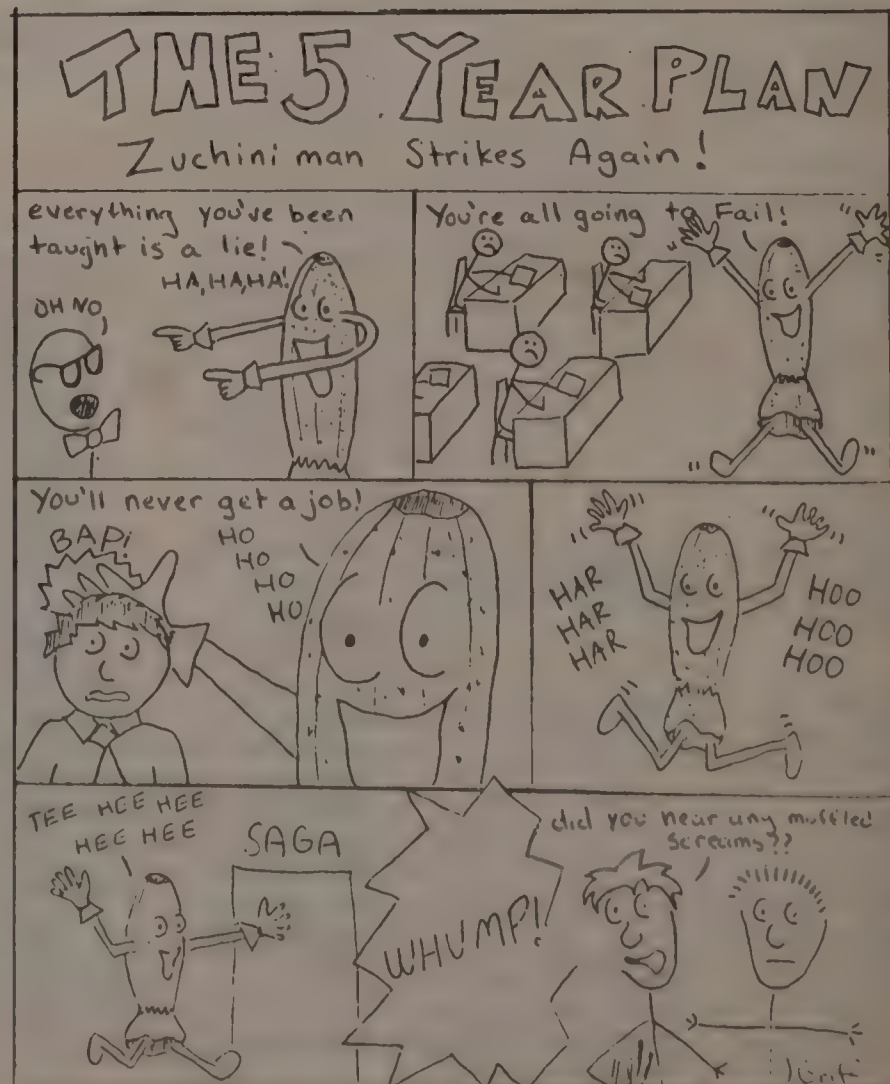 THE 5 YEAR PLAN
Zuchini man Strikes Again!
everything you've been
taught is a lie!
HA, HA, HA!
OH NO,
You're all going to Fail!
You'll never get a job!
BAP!
HO
HO
HO
HO
HAR
HAR
HAR
HOO
HOO
HOO
TEE HEE HEE
HEE HEE
SAGA
WHUMP!
did you hear any muffled
screams??